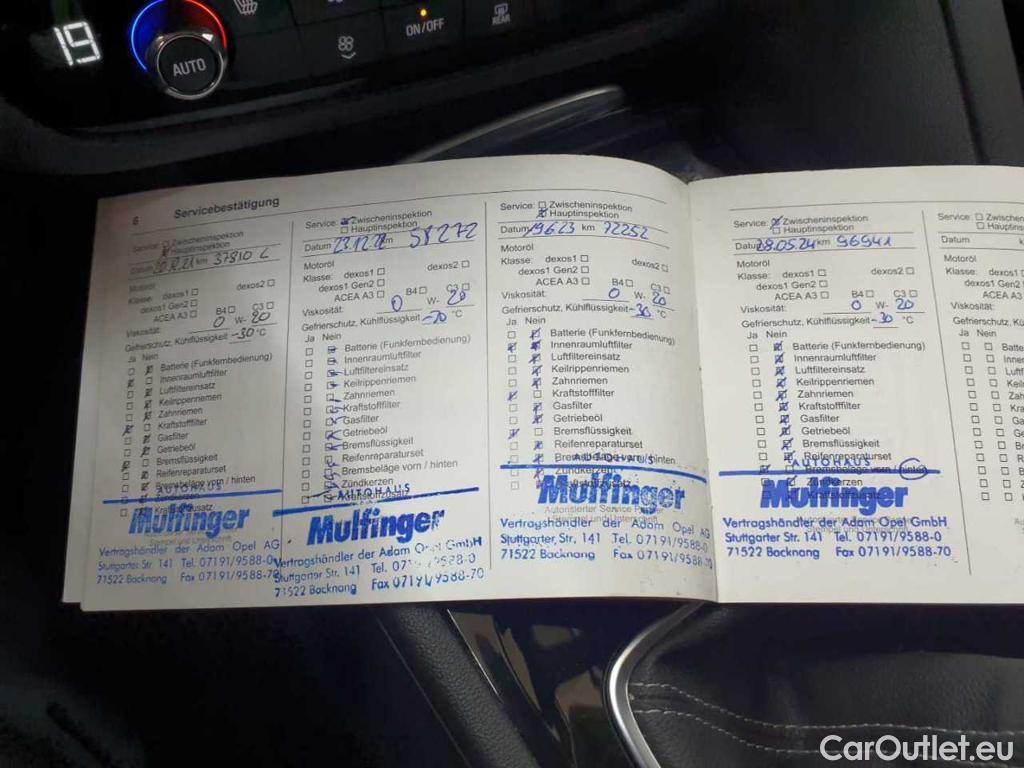 19
AUTO
ON/OFF
REAR
6 Servicebestätigung
Service: Zwischeninspektion
Hauptinspektion
Datum 20.12.21 km 37810
Motoröl
Klasse: dexos1 dexos2
dexos1 Gen2
ACEA A3 B4 C3
Viskosität: 0 W- 20
Gefrierschutz, Kühlflüssigkeit -30 °C
Ja Nein
Batterie (Funkfernbedienung)
Innenraumluftfilter
Luftfiltereinsatz
Keilrippenriemen
Zahnriemen
Kraftstofffilter
Gasfilter
Getriebeöl
Bremsflüssigkeit
Reifenreparaturset
Bremsbeläge vorn / hinten
Zündkerzen
Kraftstoffzusatz
AUTOHAUS
Mulfinger
Vertragshändler der Adam Opel AG
Stuttgarter Str. 141 Tel. 07191/9588-0
71522 Backnang Fax 07191/9588-70
Service: Zwischeninspektion
Hauptinspektion
Datum 23.12.22 km 58272
Motoröl
Klasse: dexos1 dexos2
dexos1 Gen2
ACEA A3 B4 C3
Viskosität: 0 W- 20
Gefrierschutz, Kühlflüssigkeit -70 °C
Ja Nein
Batterie (Funkfernbedienung)
Innenraumluftfilter
Luftfiltereinsatz
Keilrippenriemen
Zahnriemen
Kraftstofffilter
Gasfilter
Getriebeöl
Bremsflüssigkeit
Reifenreparaturset
Bremsbeläge vorn / hinten
Zündkerzen
Kraftstoffzusatz
AUTOHAUS
Mulfinger
Vertragshändler der Adam Opel GmbH
Stuttgarter Str. 141 Tel. 07191/9588-0
71522 Backnang Fax 07191/9588-70
Service: Zwischeninspektion
Hauptinspektion
Datum 19623 km 72252
Motoröl
Klasse: dexos1 dexos2
dexos1 Gen2
ACEA A3 B4 C3
Viskosität: 0 W- 20
Gefrierschutz, Kühlflüssigkeit -30 °C
Ja Nein
Batterie (Funkfernbedienung)
Innenraumluftfilter
Luftfiltereinsatz
Keilrippenriemen
Zahnriemen
Kraftstofffilter
Gasfilter
Getriebeöl
Bremsflüssigkeit
Reifenreparaturset
Bremsbeläge vorn / hinten
Zündkerzen
Kraftstoffzusatz
AUTOHAUS
Mulfinger
Autorisierter Service
Stempel und Unterschrift
Vertragshändler der Adam Opel AG
Stuttgarter Str. 141 Tel. 07191/9588-0
71522 Backnang Fax 07191/9588-70
Service: Zwischeninspektion
Hauptinspektion
Datum 28.05.24 km 96941
Motoröl
Klasse: dexos1 dexos2
dexos1 Gen2
ACEA A3 B4 C3
Viskosität: 0 W- 20
Gefrierschutz, Kühlflüssigkeit -30 °C
Ja Nein
Batterie (Funkfernbedienung)
Innenraumluftfilter
Luftfiltereinsatz
Keilrippenriemen
Zahnriemen
Kraftstofffilter
Gasfilter
Getriebeöl
Bremsflüssigkeit
Reifenreparaturset
Bremsbeläge vorn / hinten
Zündkerzen
Kraftstoffzusatz
AUTOHAUS
Mulfinger
Vertragshändler der Adam Opel GmbH
Stuttgarter Str. 141 Tel. 07191/9588-0
71522 Backnang Fax 07191/9588-70
Service:
Datum
Motoröl
Klasse: dexos1
dexos1 Gen2
ACEA A3
Viskosität:
Gefrierschutz,
Ja Nein
CarOutlet.eu